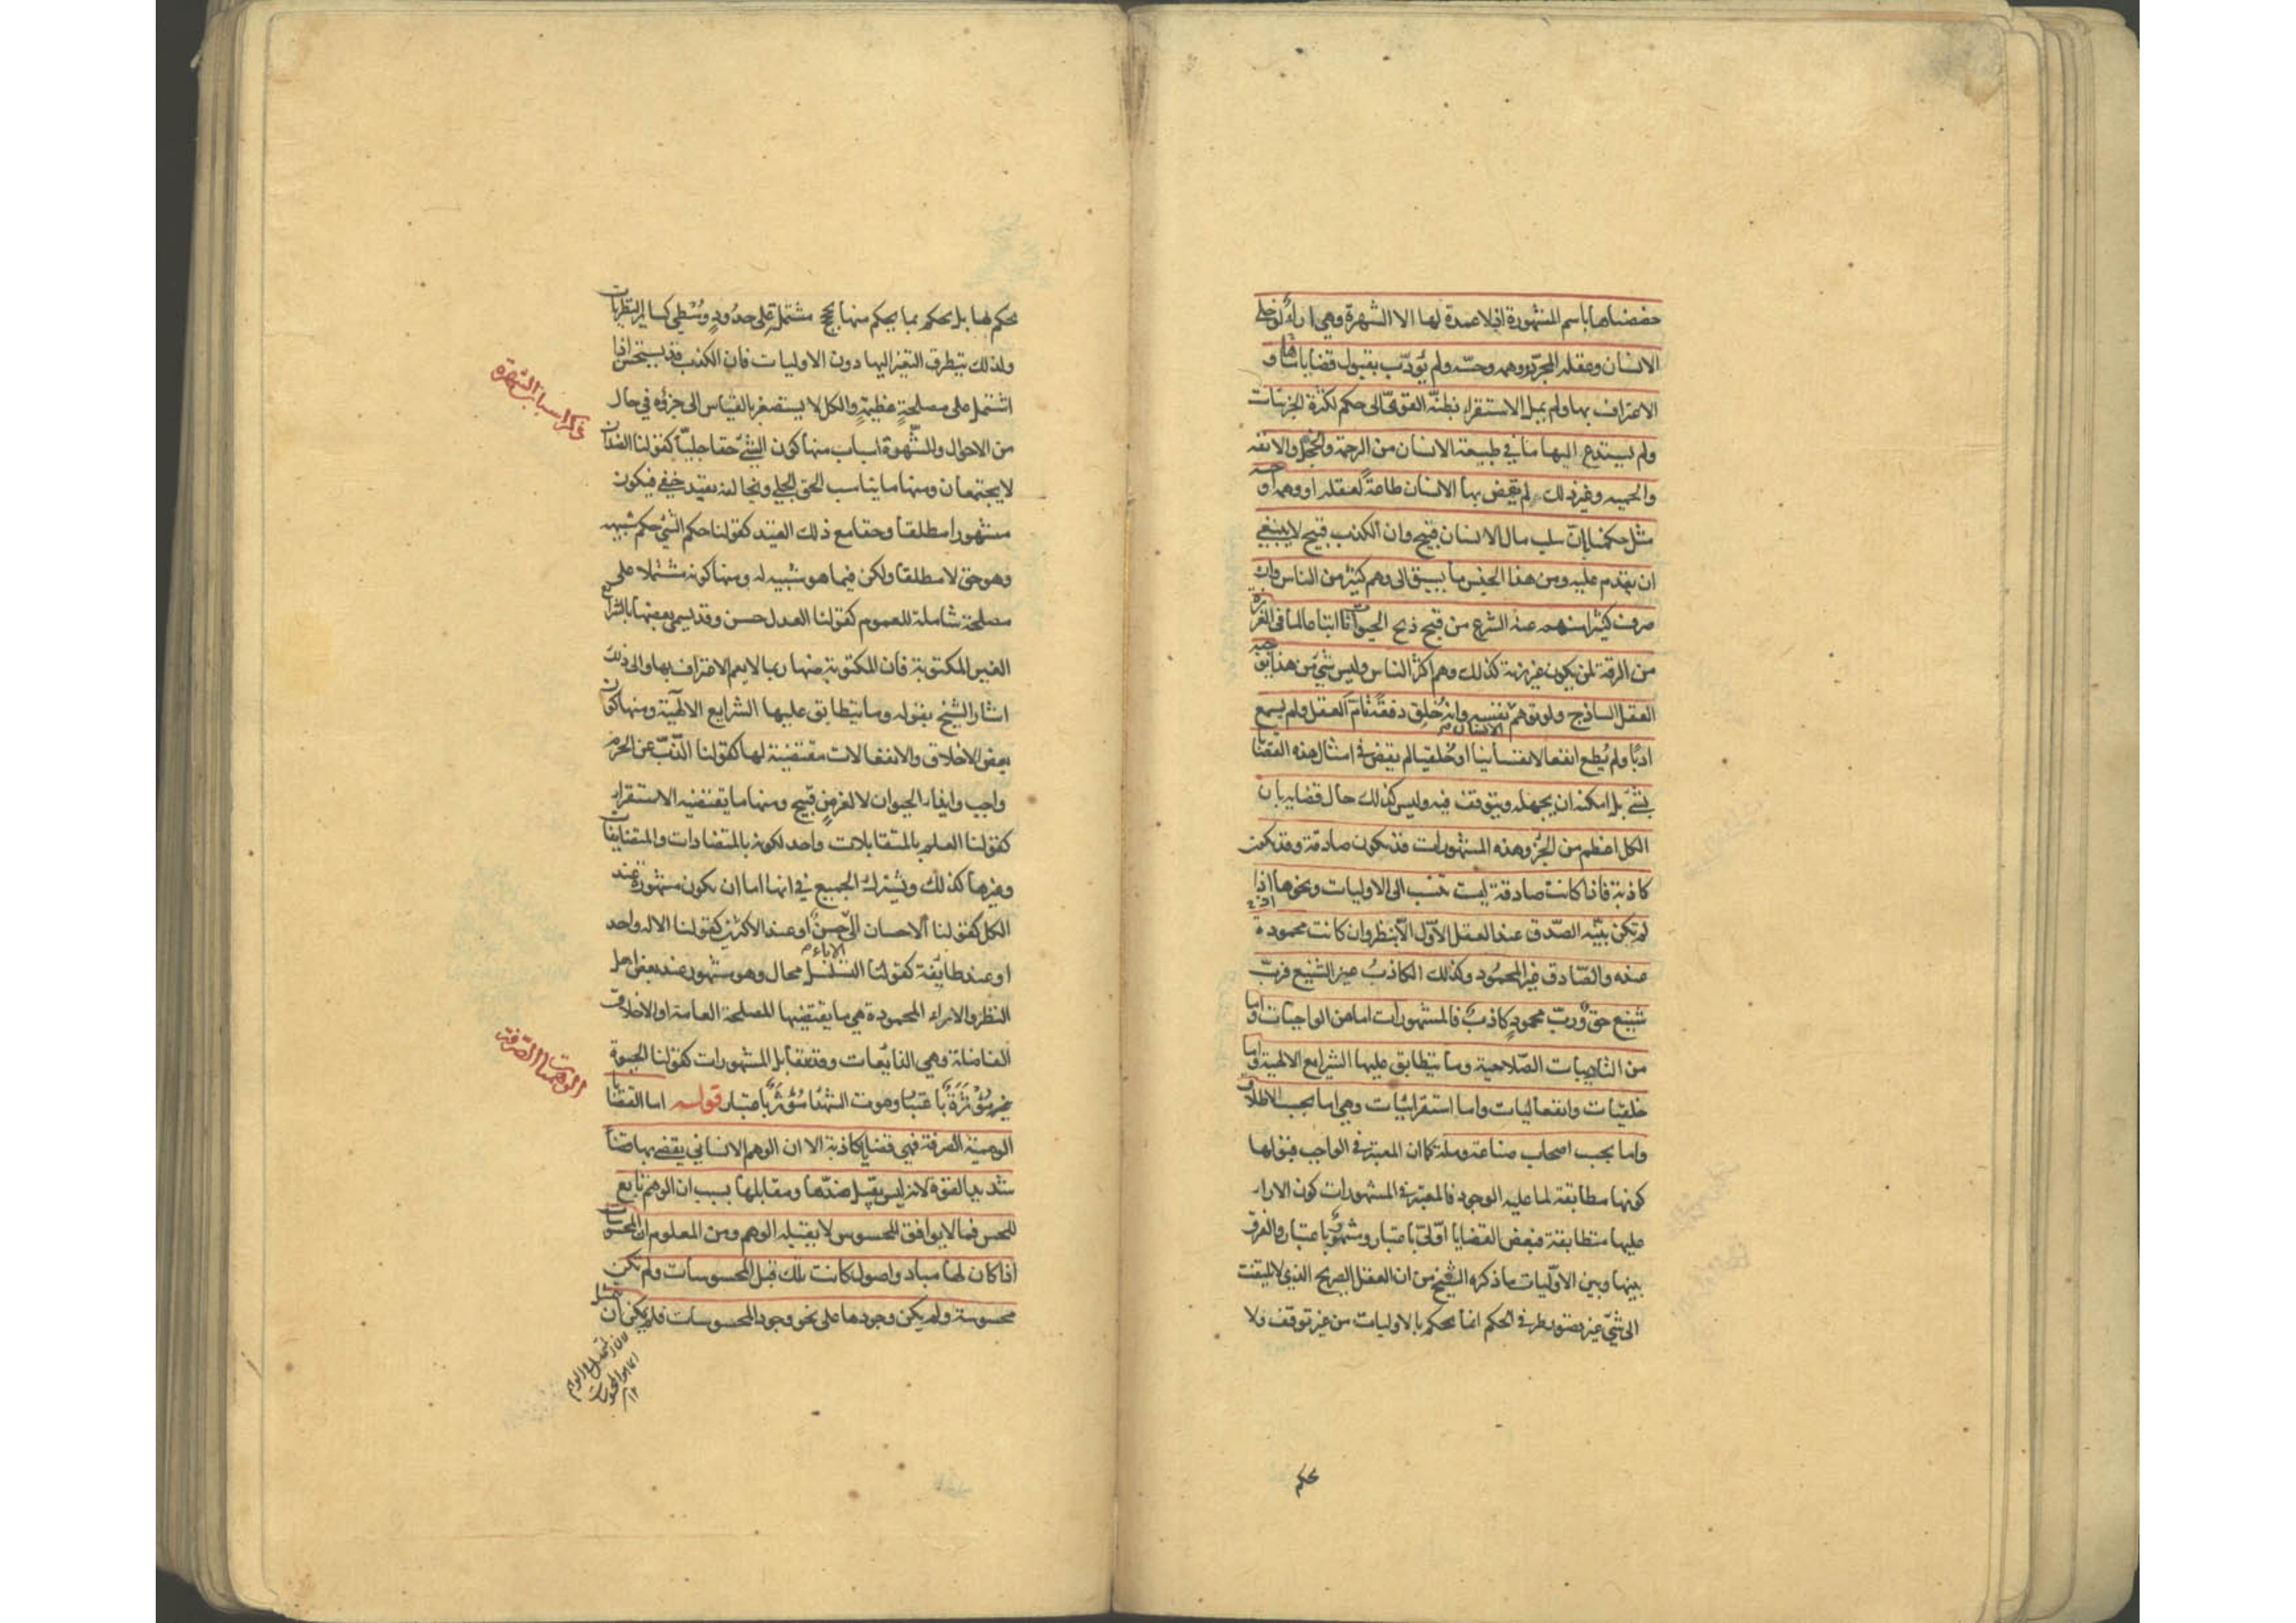 خصصناها باسم المشهورة اذ لا عمدة لها الا الشهرة وهى اراء لو خلى
الانسان وعقله المجرد ووهمه وحسه ولم يؤدب بقبول قضاياها و
الاعتراف بها ولم يمل الاستقراء بظنه القوى الى حكم لكثرة الجزئيات
ولم يستدع اليها ما فى طبيعة الانسان من الرحمة والخجل والانفة
والحمية وغير ذلك لم يقض بها الانسان طاعة لعقله او وهمه او حسه
مثل حكمنا بان سلب مال الانسان قبيح وان الكذب قبيح لا ينبغى
ان يقدم عليه ومن هذا الجنس ما يسبق الى وهم كثير من الناس وان
صرف كثيرا منهم عنه الشرع من قبح ذبح الحيوانات اتباعا لما فى الغريزة
من الرقة لمن يكون غريزته كذلك وهم اكثر الناس وليس شئ من هذا يوجبه
العقل الساذج ولو توهم الانسان نفسه وانه خلق دفعة تام العقل ولم يسمع
ادبا ولم يطع انفعالا نفسانيا او خلقيا لم يقض فى امثال هذه القضايا
بشئ بل امكنه ان يجهله ويتوقف فيه وليس كذلك حال قضايه بان
الكل اعظم من الجزء وهذه المشهورات قد يكون صادقة وقد يكون
كاذبة فاذا كانت صادقة ليست تنسب الى الاوليات ونحوها اذا
لم تكن بينة الصدق عند العقل الاول الا بنظر وان كانت محمودة
عنده والصادق غير المحمود وكذلك الكاذب غير الشنيع فرب
شنيع حق ورب محمود كاذب فالمشهورات اما من الواجبات واما
من التاديبات الصلاحية وما يتطابق عليها الشرايع الالهية واما
خلقيات وانفعاليات واما استقرائيات وهى اما بحسب الاطلاق
واما بحسب اصحاب صناعة وملة كما ان المعتبر فى الواجب قبولها
كونها مطابقة لما عليه الوجود فالمعتبر فى المشهورات كون الاراء
عليها متطابقة فبعض القضايا اولى باعتبار ومشهور باعتبار والفرق
بينها وبين الاوليات ما ذكره الشيخ من ان العقل الصريح الذى لا يلتفت
الى شئ غير تصور طرفى الحكم انما يحكم بالاوليات من غير توقف ولا
يحكم
يحكم لها بل يحكم بما يحكم منها بحجج مشتملة على حدود وسطى كساير النظريات
ولذلك يتطرق التغير اليها دون الاوليات فان الكذب قد يستحسن اذا
اشتمل على مصلحة عظيمة والكل لا يستصغر بالقياس الى جزؤه فى حال
من الاحوال والشهرة اسباب منها كون الشئ حقا جليا كقولنا الضدان
لا يجتمعان ومنها ما يناسب الحق الجلى ويخالفه بقيد خفى فيكون
مشهورا مطلقا وحقا مع ذلك القيد كقولنا حكم الشئ حكم شبيهه
وهو حق لا مطلقا ولكن فيما هو شبيه له ومنها كونه مشتملا على
مصلحة شاملة للعموم كقولنا العدل حسن وقد يسمى بعضها بالشرايع
الغير المكتوبة فان المكتوبة منها ربما لا يعم الاعتراف بها والى ذلك
اشار الشيخ بقوله وما يتطابق عليها الشرايع الالهية ومنها كون
بعض الاخلاق والانفعالات مقتضية لها كقولنا الذب عن الحرم
واجب وايذاء الحيوان لا لغرض قبيح ومنها ما يقتضيه الاستقراء
كقولنا العلم بالمتقابلات واحد لكونه بالمتضادات والمتضايفات
وغيرها كذلك ويشترك الجميع فى انها اما ان يكون مشهورة عند
الكل كقولنا الاحسان الى الاباء حسن او عند الاكثرين كقولنا الاله واحد
او عند طايفة كقولنا التسلسل محال وهو مشهور عند بعض اهل
النظر والاراء المحمودة هى ما يقتضيها المصلحة العامة او الاخلاق
الفاضلة وهى الذايعات وقد تقابل المشهورات كقولنا الحيوة
غير مؤثرة باعتبار وموت الشهدا مؤثر باعتبار قوله اما القضايا
الوهمية الصرفة فهى قضايا كاذبة الا ان الوهم الانسانى يقضى بها قضاء
شديد القوة لانه ليس يقبل ضدها ومقابلها بسبب ان الوهم تابع
للحس فما لا يوافق المحسوس لا يقبله الوهم ومن المعلوم ان المحسوسات
اذا كان لها مباد واصول كانت تلك قبل المحسوسات ولم تكن
محسوسة ولم يكن وجودها على نحو وجود المحسوسات فلم يكن ان
ذكر اسباب الشهرة
الوهميات الصرفة